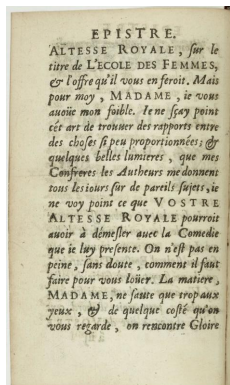 EPISTRE.
ALTESSE ROYALE, ſur le
titre de L'ECOLE DES FEMMES,
& l'offre qu'il vous en feroit. Mais
pour moy, MADAME, ie vous
auoüe mon foible. Ie ne ſçay point
cét art de trouuer des rapports entre
des choſes ſi peu proportionnées; &
quelques belles lumieres, que mes
Confreres les Autheurs me donnent
tous les iours ſur de pareils ſujets, ie
ne voy point ce que VOSTRE
ALTESSE ROYALE pourroit
auoir à démeſler auec la Comedie
que ie luy preſente. On n'eſt pas en
peine, ſans doute, comment il faut
faire pour vous loüer. La matiere,
MADAME, ne ſaute que trop aux
yeux, & de quelque coſté qu'on
vous regarde, on rencontre Gloire